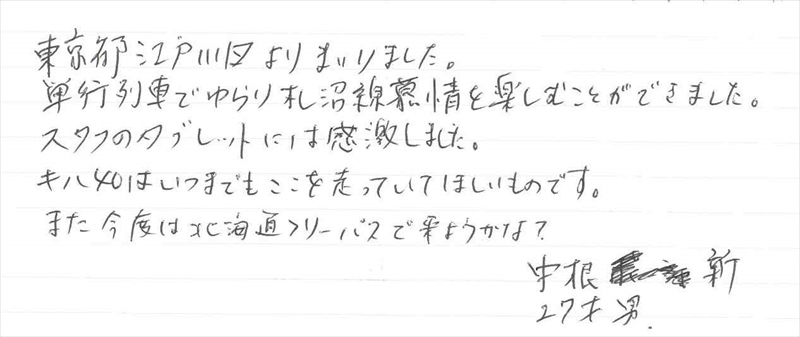 東京都江戸川区よりまいりました。
単行列車でゆらり札沼線慕情を楽しむことができました。
スタフのタブレットには感激しました。
キハ40はいつまでもここを走っていてほしいものです。
また今度は北海道フリーパスで来ようかな?
中根 新
27才 男.